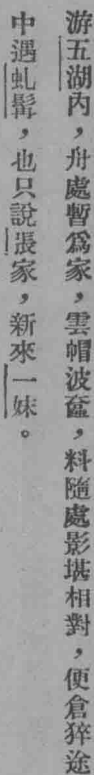 游五湖內，舟處暫爲家，雲帽波奩，料隨處影堪相對，便倉猝途
中遇虬髯，也只說張家，新來一妹。